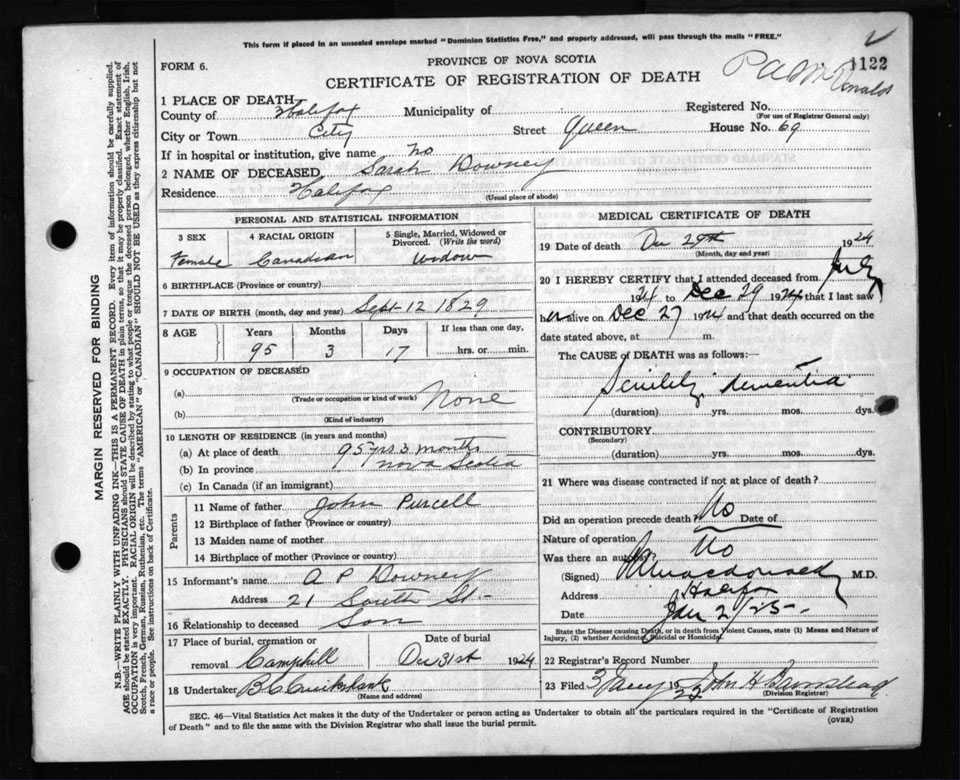 This form if placed in an unsealed envelope marked "Dominion Statistics Free," and properly addressed, will pass through the mails "FREE."
FORM 6.
PROVINCE OF NOVA SCOTIA
1122
CERTIFICATE OF REGISTRATION OF DEATH
1 PLACE OF DEATH
County of Halifax Municipality of Registered No.
(For use of Registrar General only)
City or Town City Street Queen House No. 69
If in hospital or institution, give name No
2 NAME OF DECEASED Sarah Downey
Residence Halifax
(Usual place of abode)
PERSONAL AND STATISTICAL INFORMATION
3 SEX 4 RACIAL ORIGIN 5 Single, Married, Widowed or
Divorced. (Write the word)
Female Canadian Widow
6 BIRTHPLACE (Province or country)
7 DATE OF BIRTH (month, day and year) Sept 12 1829
8 AGE Years Months Days If less than one day,
95 3 17 hrs. or min.
9 OCCUPATION OF DECEASED
(a) None
(Trade or occupation or kind of work)
(b)
(Kind of industry)
10 LENGTH OF RESIDENCE (in years and months)
(a) At place of death 95 yrs 3 months
(b) In province Nova Scotia
(c) In Canada (if an immigrant)
Parents
11 Name of father John Purcell
12 Birthplace of father (Province or country)
13 Maiden name of mother
14 Birthplace of mother (Province or country)
15 Informant's name A P Downey
Address 21 South St-
16 Relationship to deceased Son
17 Place of burial, cremation or Date of burial
removal Camphill Dec 31st 1924
18 Undertaker
MEDICAL CERTIFICATE OF DEATH
19 Date of death Dec 29th 1924
(Month, day and year)
20 I HEREBY CERTIFY that I attended deceased from July
1924 to Dec 29 1924 that I last saw
her alive on Dec 27 1924 and that death occurred on
date stated above, at m.
The CAUSE of DEATH was as follows:
Senility dementia
(duration) yrs. mos. dys.
CONTRIBUTORY
(Secondary)
(duration) yrs. mos. dys.
21 Where was disease contracted if not at place of death?
Did an operation precede death? No Date of
Nature of operation
Was there an autopsy? No
(Signed) Macdonald M.D.
Address Halifax
Date Jan 2/25-
State the Disease causing Death, or in death from Violent Causes, state (1) Means and Nature of
Injury, (2) whether Accidental, Suicidal or Homicidal.
22 Registrar's Record Number
23 Filed John H
(Division Registrar)
SEC. 46—Vital Statistics Act makes it the duty of the Undertaker or person acting as Undertaker to obtain all the particulars required in the "Certificate of Registration
of Death" and to file the same with the Division Registrar who shall issue the burial permit.
(OVER)
MARGIN RESERVED FOR BINDING
N.B.—WRITE PLAINLY WITH UNFADING INK—THIS IS A PERMANENT RECORD. Every item of information should be carefully supplied.
AGE should be stated EXACTLY. PHYSICIANS should STATE CAUSE OF DEATH in plain terms, so that it may be properly classified. Exact statement of
OCCUPATION is very important. RACIAL ORIGIN will be described by stating to what people or tongue the deceased person belonged, whether English, Irish,
Scotch, French, German, Russian, Ruthenian, etc. The terms "AMERICAN" or "CANADIAN" SHOULD NOT BE USED as they express citizenship but not
a race or people. See instructions on back of Certificate.